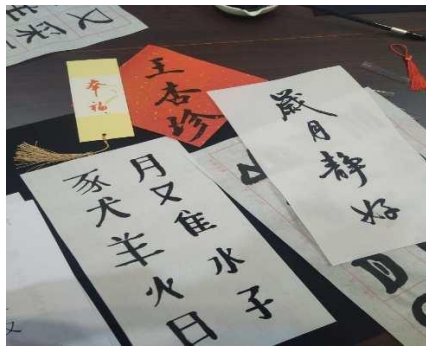 幸福
王杏珍
歲月静好
月又隹水子
豕犬羊火日